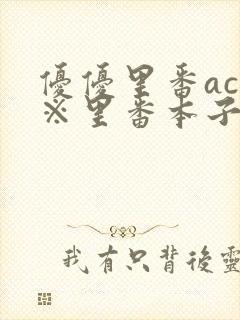 優優里番ac
※里番本子
我有只背後靈